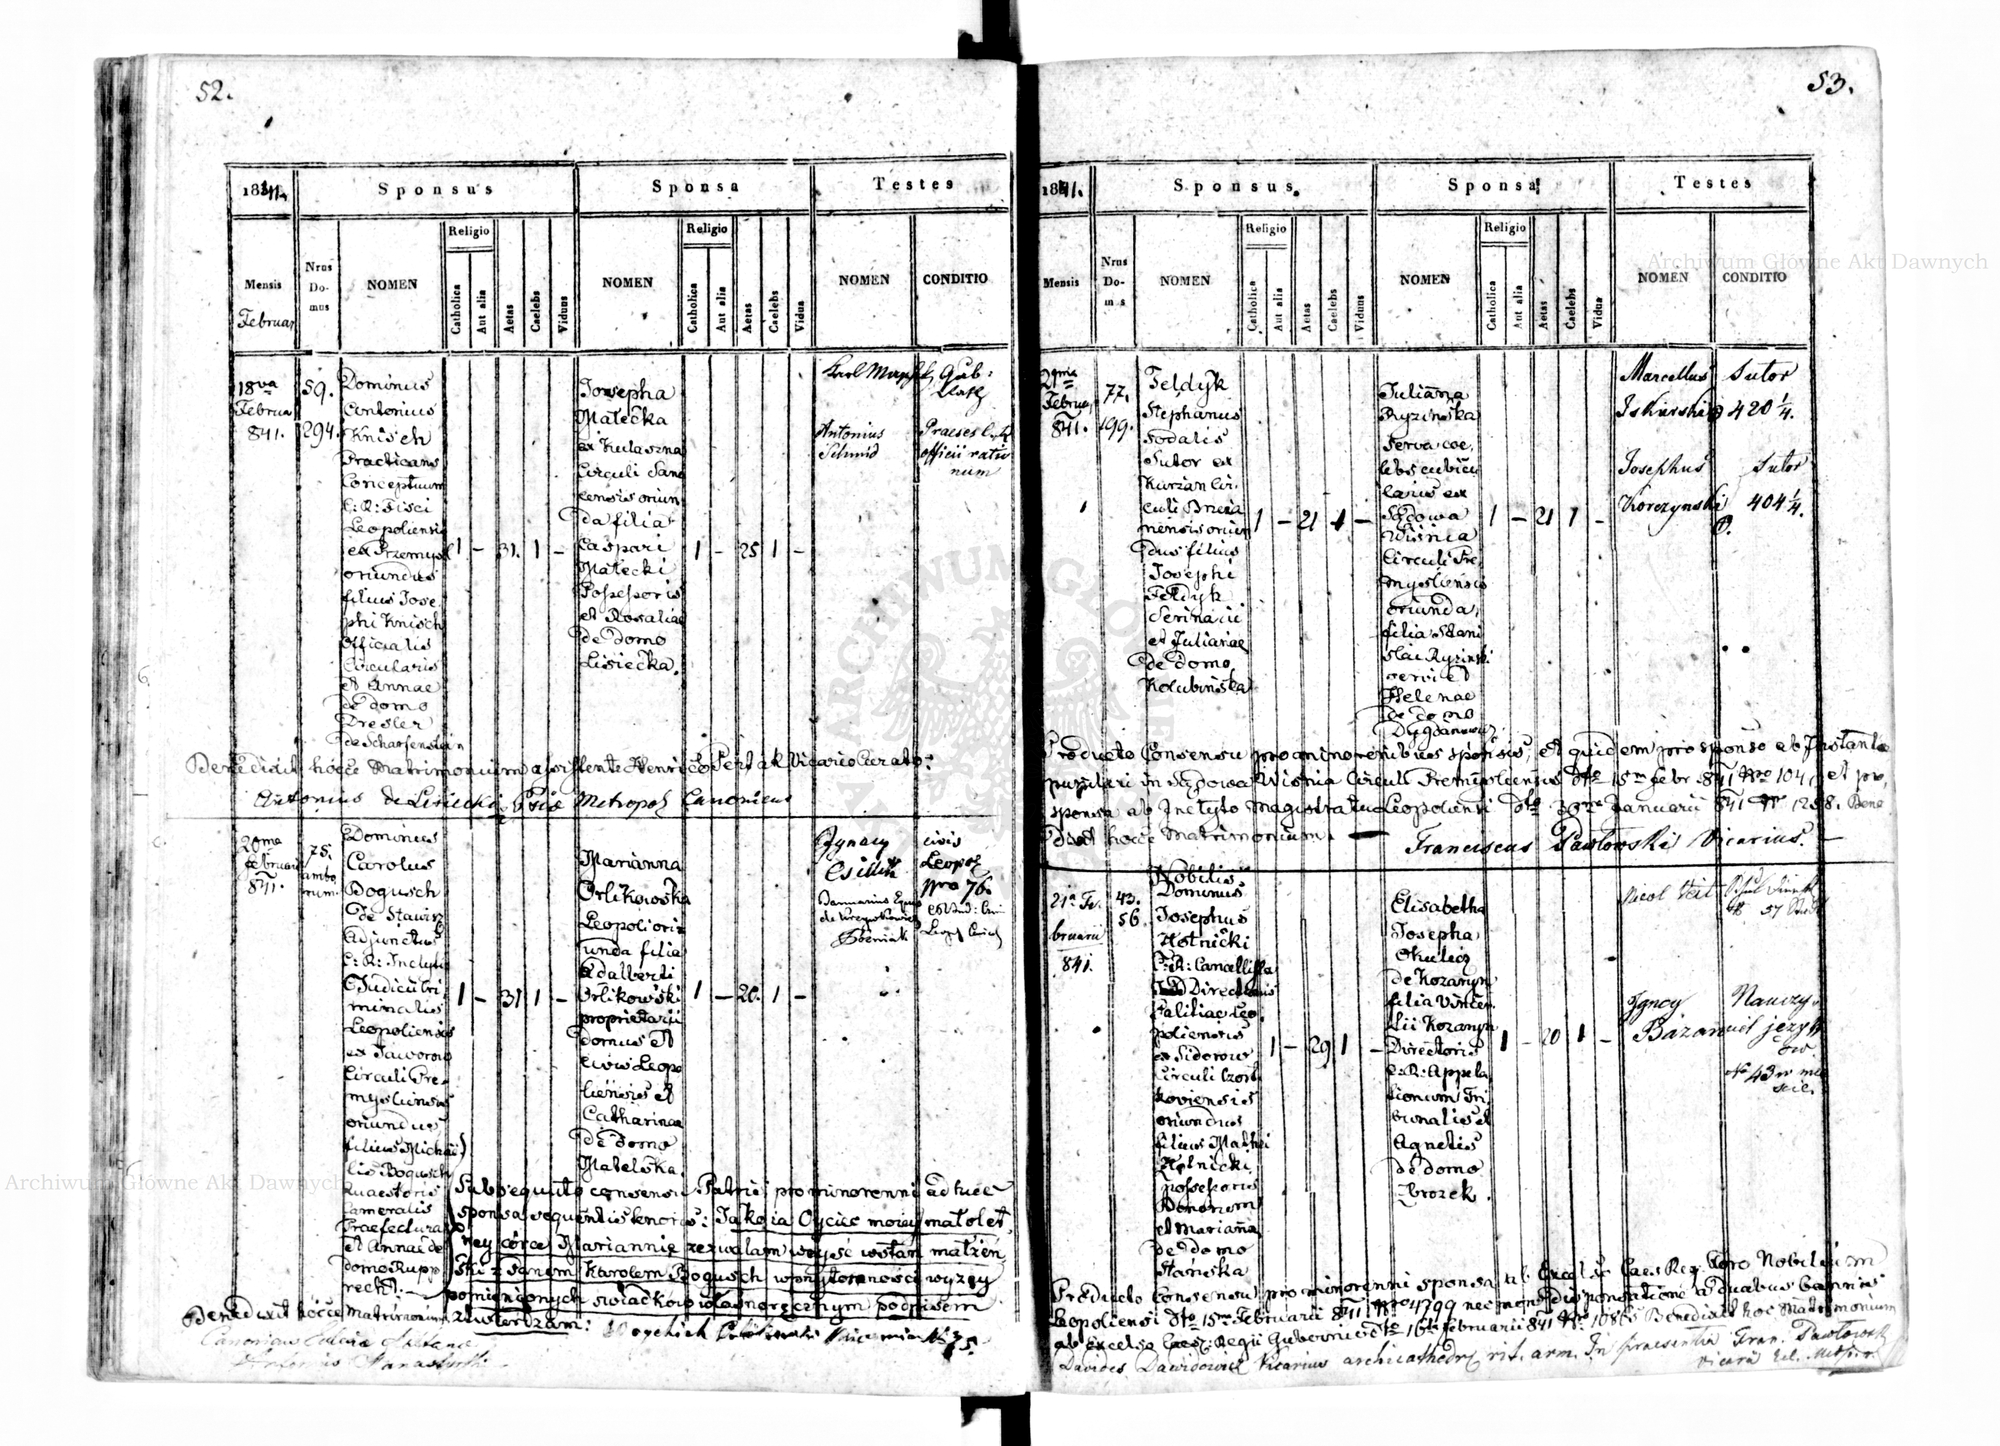 52.
1841.
Sponsus
Sponsa
Testes
Mensis
Februar
Nrus
Do-
mus
NOMEN
Religio
Catholica
Aut alia
Aetas
Caelebs
Viduus
NOMEN
Religio
Catholica
Aut alia
Aetas
Caelebs
Vidua
NOMEN
CONDITIO
18va
Februar
841.
59.
294.
Dominus
Antonius
Knisch
Practicans
Conceptuum
C: R: Fisci
Leopoliensis
ex Przemysl
oriundus
filius Jose
phi Knisch
Officialis
Circularis
et Annae
de domo
Dresler
de Scharfenstein
1 - 31. 1 -
Josepha
Małecka
ex Kulaszna
Circuli Sano
censis oriun
da filia
Caspari
Małecki
Possessoris
et Rosaliae
de domo
Lisiecka.
1 - 25 1 -
Antonius
Schmid
Praeses
officii ratio
num
Benedixit hocce Matrimonium assistente Henrico Vicario Curato:
Antonius de Lisiecki Metropol Canonicus
20ma
februarii
841.
75.
ambo
rum.
Dominus
Carolus
Bogusch
de Stawisz
Adjunctus
C: R: Inclyti
Judicii Cri
minalis
Leopoliensis
ex Jaworow
Circuli Pre-
mysliensis
oriundus
filius Michae
lis Bogusch
Quaestoris
Cameralis
Praefectura
et Annae de
domo Rupp
recht.
1 - 31 1 -
Marianna
Orlikowska
Leopoli ori
unda filia
Adalberti
Orlikowski
proprietarii
domus et
civis Leopo
liensis et
Catharinae
de domo
Mabelska.
1 - 20. 1 -
Ignacy
civis
Leopol
Nro 76.
Subsequito consensu Patris pro minorenni adhuc
sponsa sequentis tenoris: Jako ja Oyciec moiey małolet
ney córce Mariannie zezwalam weyść w stan małżeń
ski z Panem Karolem Bogusch w przytomności wyżey
pomienionych świadków własnoręcznym podpisem
ztwierdzam: Woyciech
Benedixit hocce Matrimonium
53.
1841.
Sponsus
Sponsa
Testes
Mensis
Nrus
Do-
mus
NOMEN
Religio
Catholica
Aut alia
Aetas
Caelebs
Viduus
NOMEN
Religio
Catholica
Aut alia
Aetas
Caelebs
Vidua
NOMEN
CONDITIO
Februar
841.
77.
199.
Feldyk
Stephanus
Sodalis
Sutor ex
Kurzan Cir.
culi Brzeza
nensis oriun
dus filius
Josephi
Feldyk
et Julianae
de domo
Holubinska
1 - 21 1 -
Julianna
Ryzinska
Serva coe
lebs cubicu
laris ex
Sądowa
Wisnia
Circuli Pre
mysliensis
oriunda,
filia Stani
slai Ryzinski
servi et
Helenae
de domo
Dygdanowicz
1 - 21 1 -
Marcellus
Iskierski
Sutor
420 1/4.
Josephus
Korczynski
Sutor
404 1/4.
Producto Consensu pro ambo minorenibus sponsis, et quidem pro sponso ab Instantia
in Sądowa Wisnia Circuli Premysliensis dto 15ta febr. 841 Nro 104, et pro
sponsa ab Inclyto Magistratu Leopoliensi dto Januarii 841 Bene
dixit hocce Matrimonium. — Franciscus Pawłowski Vicarius. —
21a Fe.
bruarii
841.
43.
56.
Nobilis
Dominus
Josephus
Hotnicki
C: R: Cancellista
Directionis
Galiciae Leo.
poliensis
ex Sidorow
Circuli Czort
koviensis
oriundus
filius Mathei
Hotnicki
possessoris
Bonorum
et Marianna
de domo
Stanska
1 - 29 1 -
Elisabetha
Josepha
Okulicz
de Kozaryn
filia Vincen
tii Kozaryn
Directoris
C: R: Appela
tionum Tri
bunalis et
Agnetis
de domo
Zbrozek.
1 - 20 1 -
Nicol Veit
Ignacy
Bazan
Nauczy
ciel język
ów.
No 43 w mie
ście.
Producto Consensu pro minorenni sponsa ab Excelso Caes. Reg. Foro Nobilium
Leopoliensi dto 15ta Februarii 841 Nro 4799 nec non dispensatione a duabus bannis
ab excelso Caes: Regii Gubernio dto 16ta februarii 841 Benedixit hoc Matrimonium
Davides Dawidowicz Vicarius archicathedr rit. arm. In praesentia Fran. Pawłowski
Archiwum Główne Akt Dawnych
Archiwum Główne Akt Dawnych
ARCHIWUM GŁÓWNE